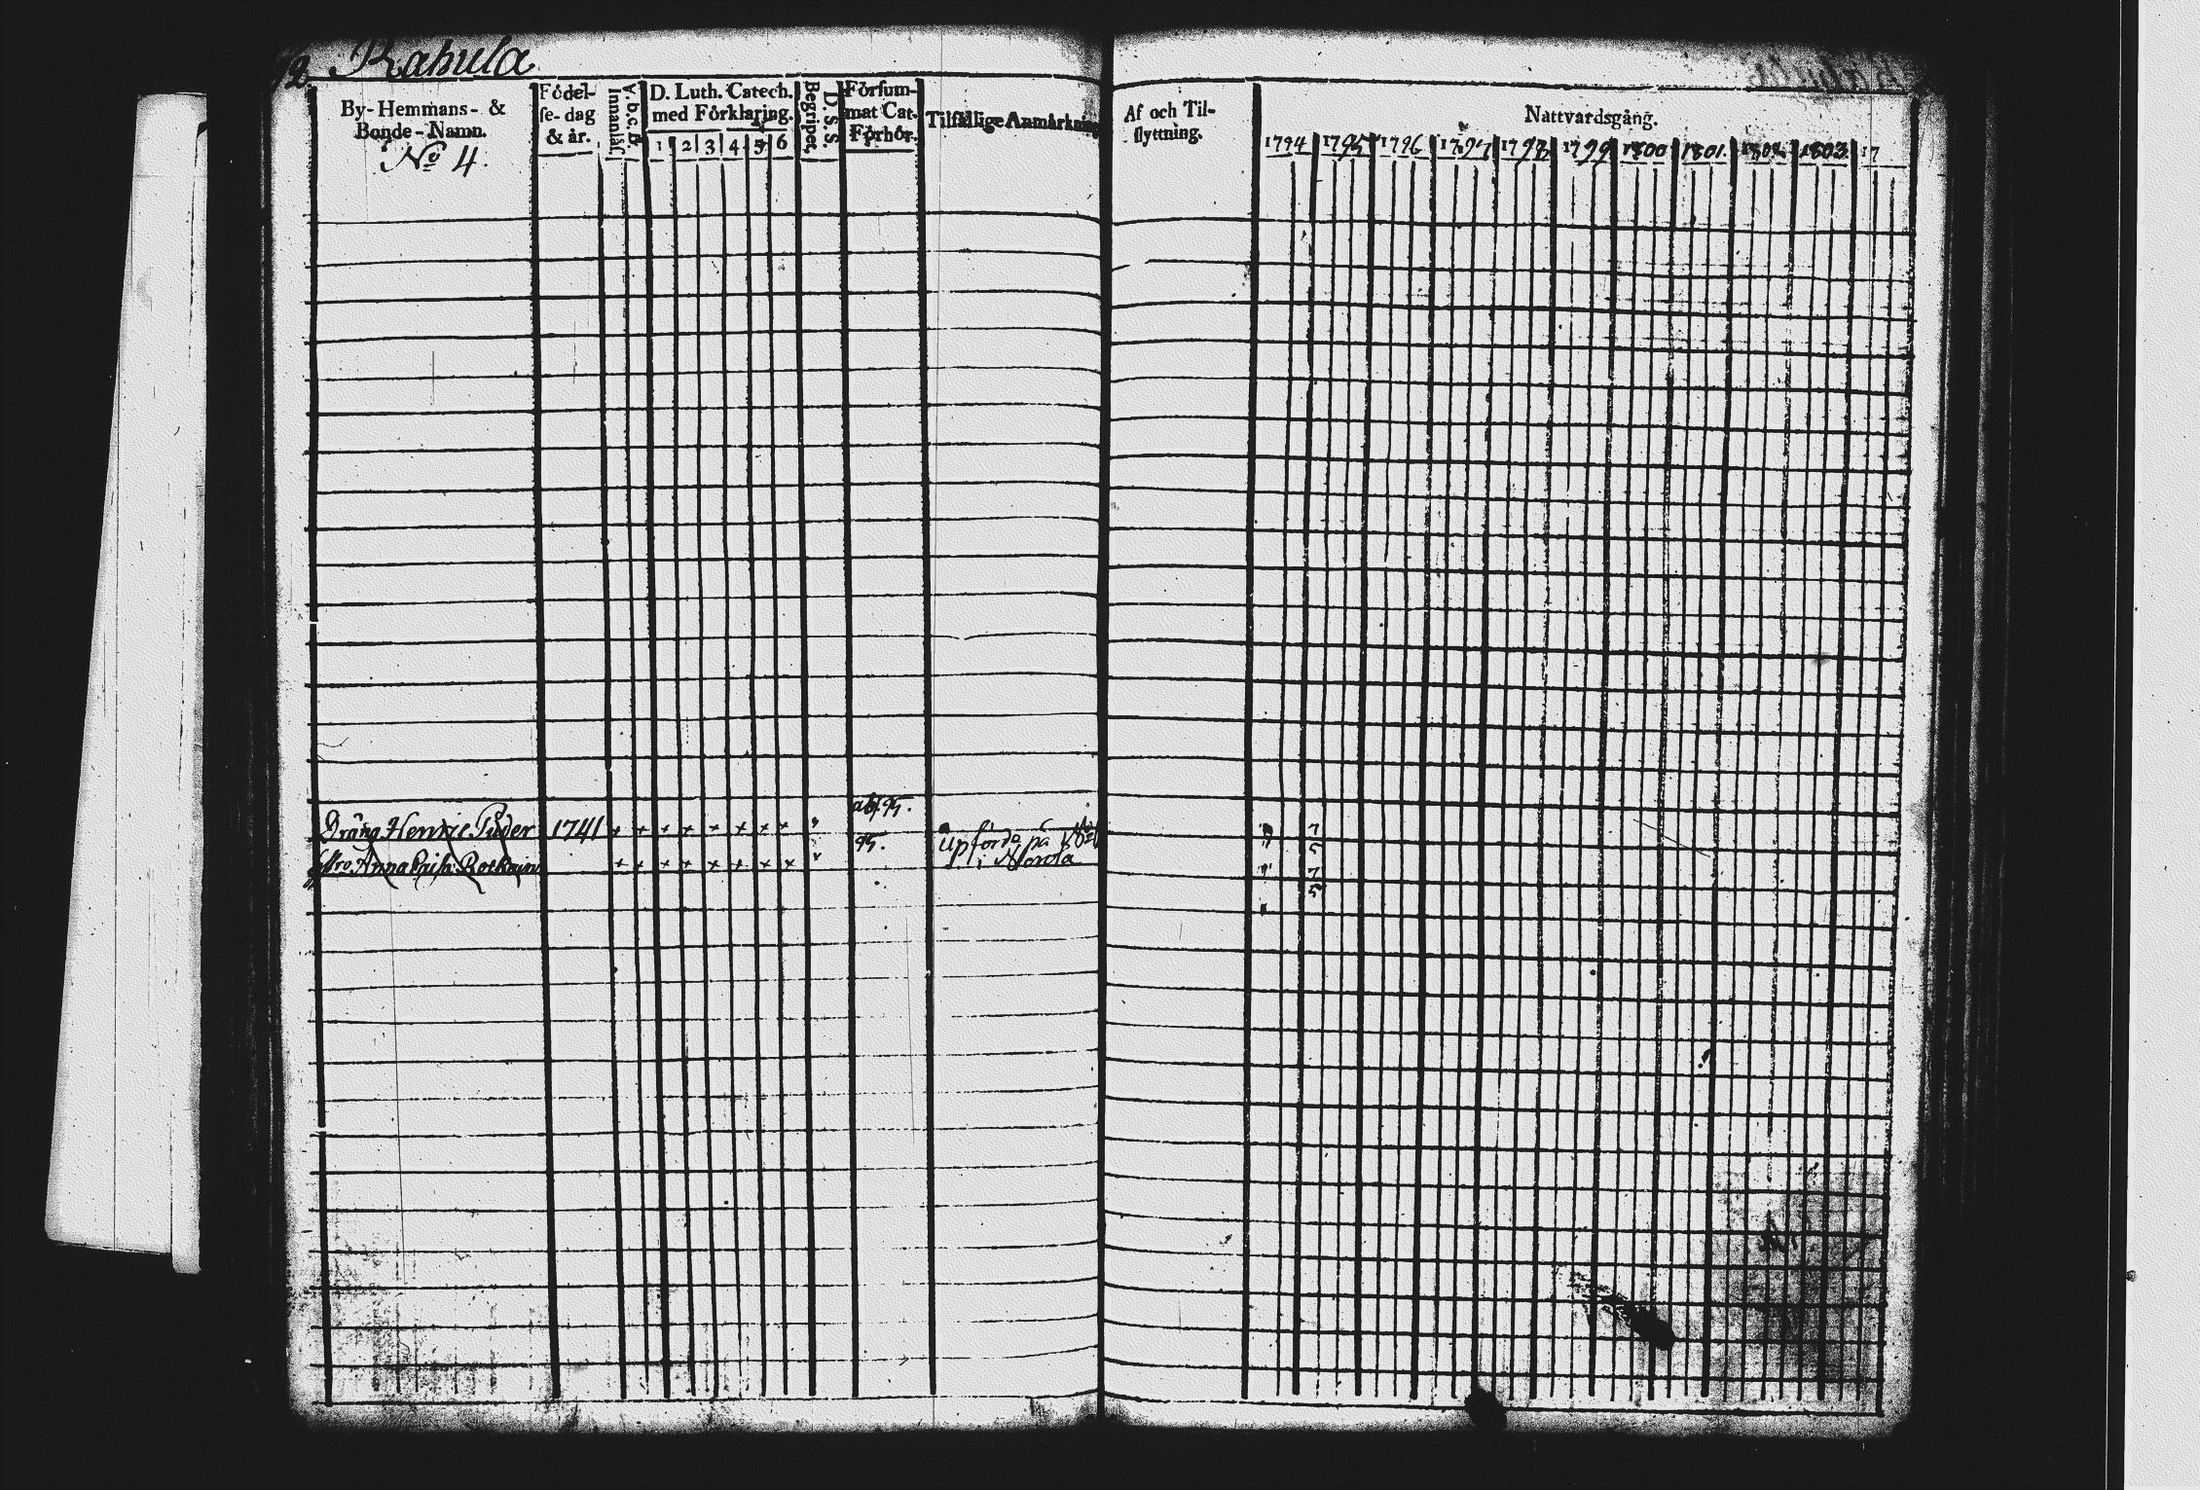 Rabula
By- Hemmans- & Bonde- Namn.
No 4.
Födel-se-dag & år.
Innanläs
A.b.c.B.
D. Luth. Catech. med Förklaring.
1 2 3 4 5 6
Begripet.
D.S.S.
Försum-mat Cat-Förhör.
Tilfällige Anmärkning
Af och Til-flyttning.
Nattvardsgång.
1794 1795 1796 1797 1798 1799 1800 1801. 1802. 1803. 17
Dräng Henric 1741 + + + + + + + +
95.
upförde på
i
Anna + + + + + + + +
7
5
7
5